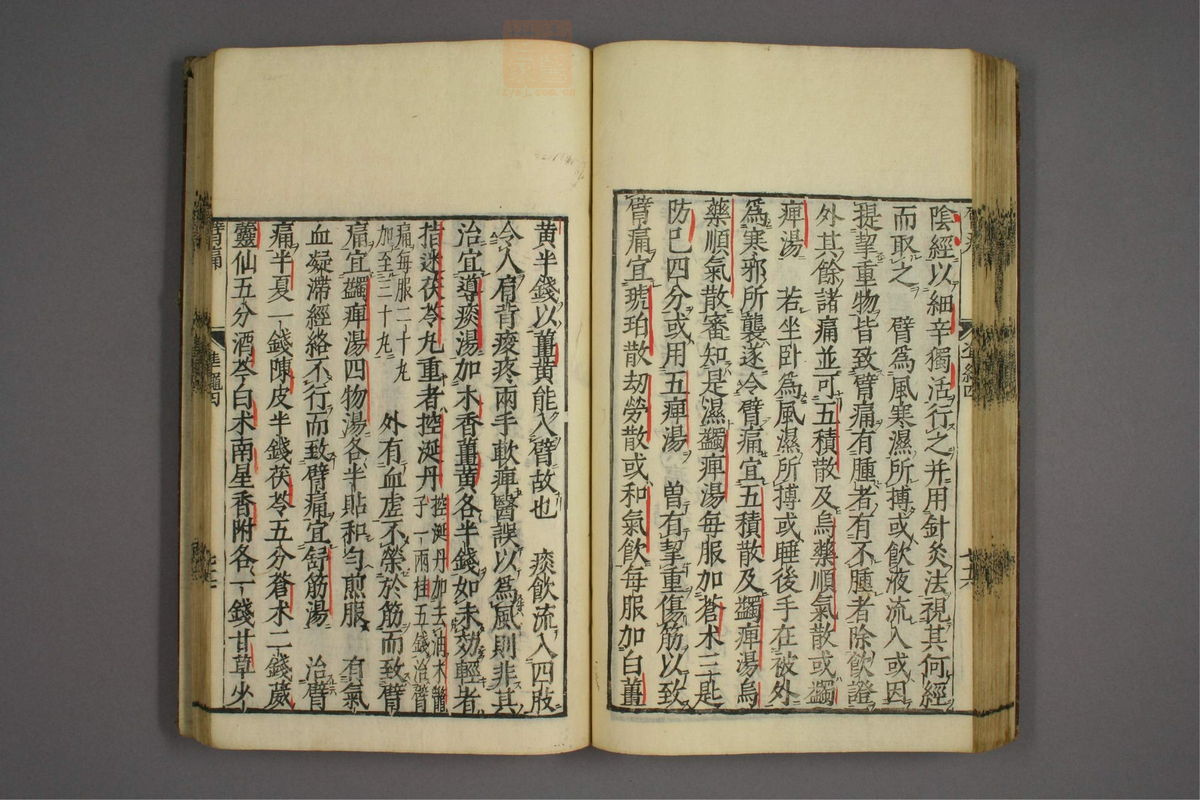 陰經以細辛獨活行之并用針灸法視其何經
而取之　臂為風寒濕所摶或飲液流入或因
提挈重物皆致臂痛有腫者有不腫者除飲證
外其餘諸痛並可五積散及烏藥順氣散或蠲
痺湯　若坐卧為風濕所摶或睡後手在被外
為寒邪所襲遂令臂痛宜五積散及蠲痺湯烏
藥順氣散審知是濕蠲痺湯每服加蒼术三匙
防已四分或用五痺湯　曽有挈重傷筋以致
臂痛宜琥珀散劫勞散或和氣飲每服加白薑
黄半錢以薑黄能入臂故也　痰飲流入四肢
令人肩背痠疼兩手軟痺醫誤以為風則非其
治宜導痰湯加木香薑黄各半錢如未効輕者
指迷茯苓丸重者控涎丹控涎丹加去油木鱉
子一兩桂五錢治臂
痛每服二十丸
加至三十丸　外有血虚不榮於筋而致臂
痛宜蠲痺湯四物湯各半貼和勻煎服　有氣
血凝滯經絡不行而致臂痛宜舒筋湯　治臂
痛半夏一錢陳皮半錢茯苓五分蒼术二錢葳
靈仙五分酒芩白术南星香附各一錢甘草少
臂痛
準繩四